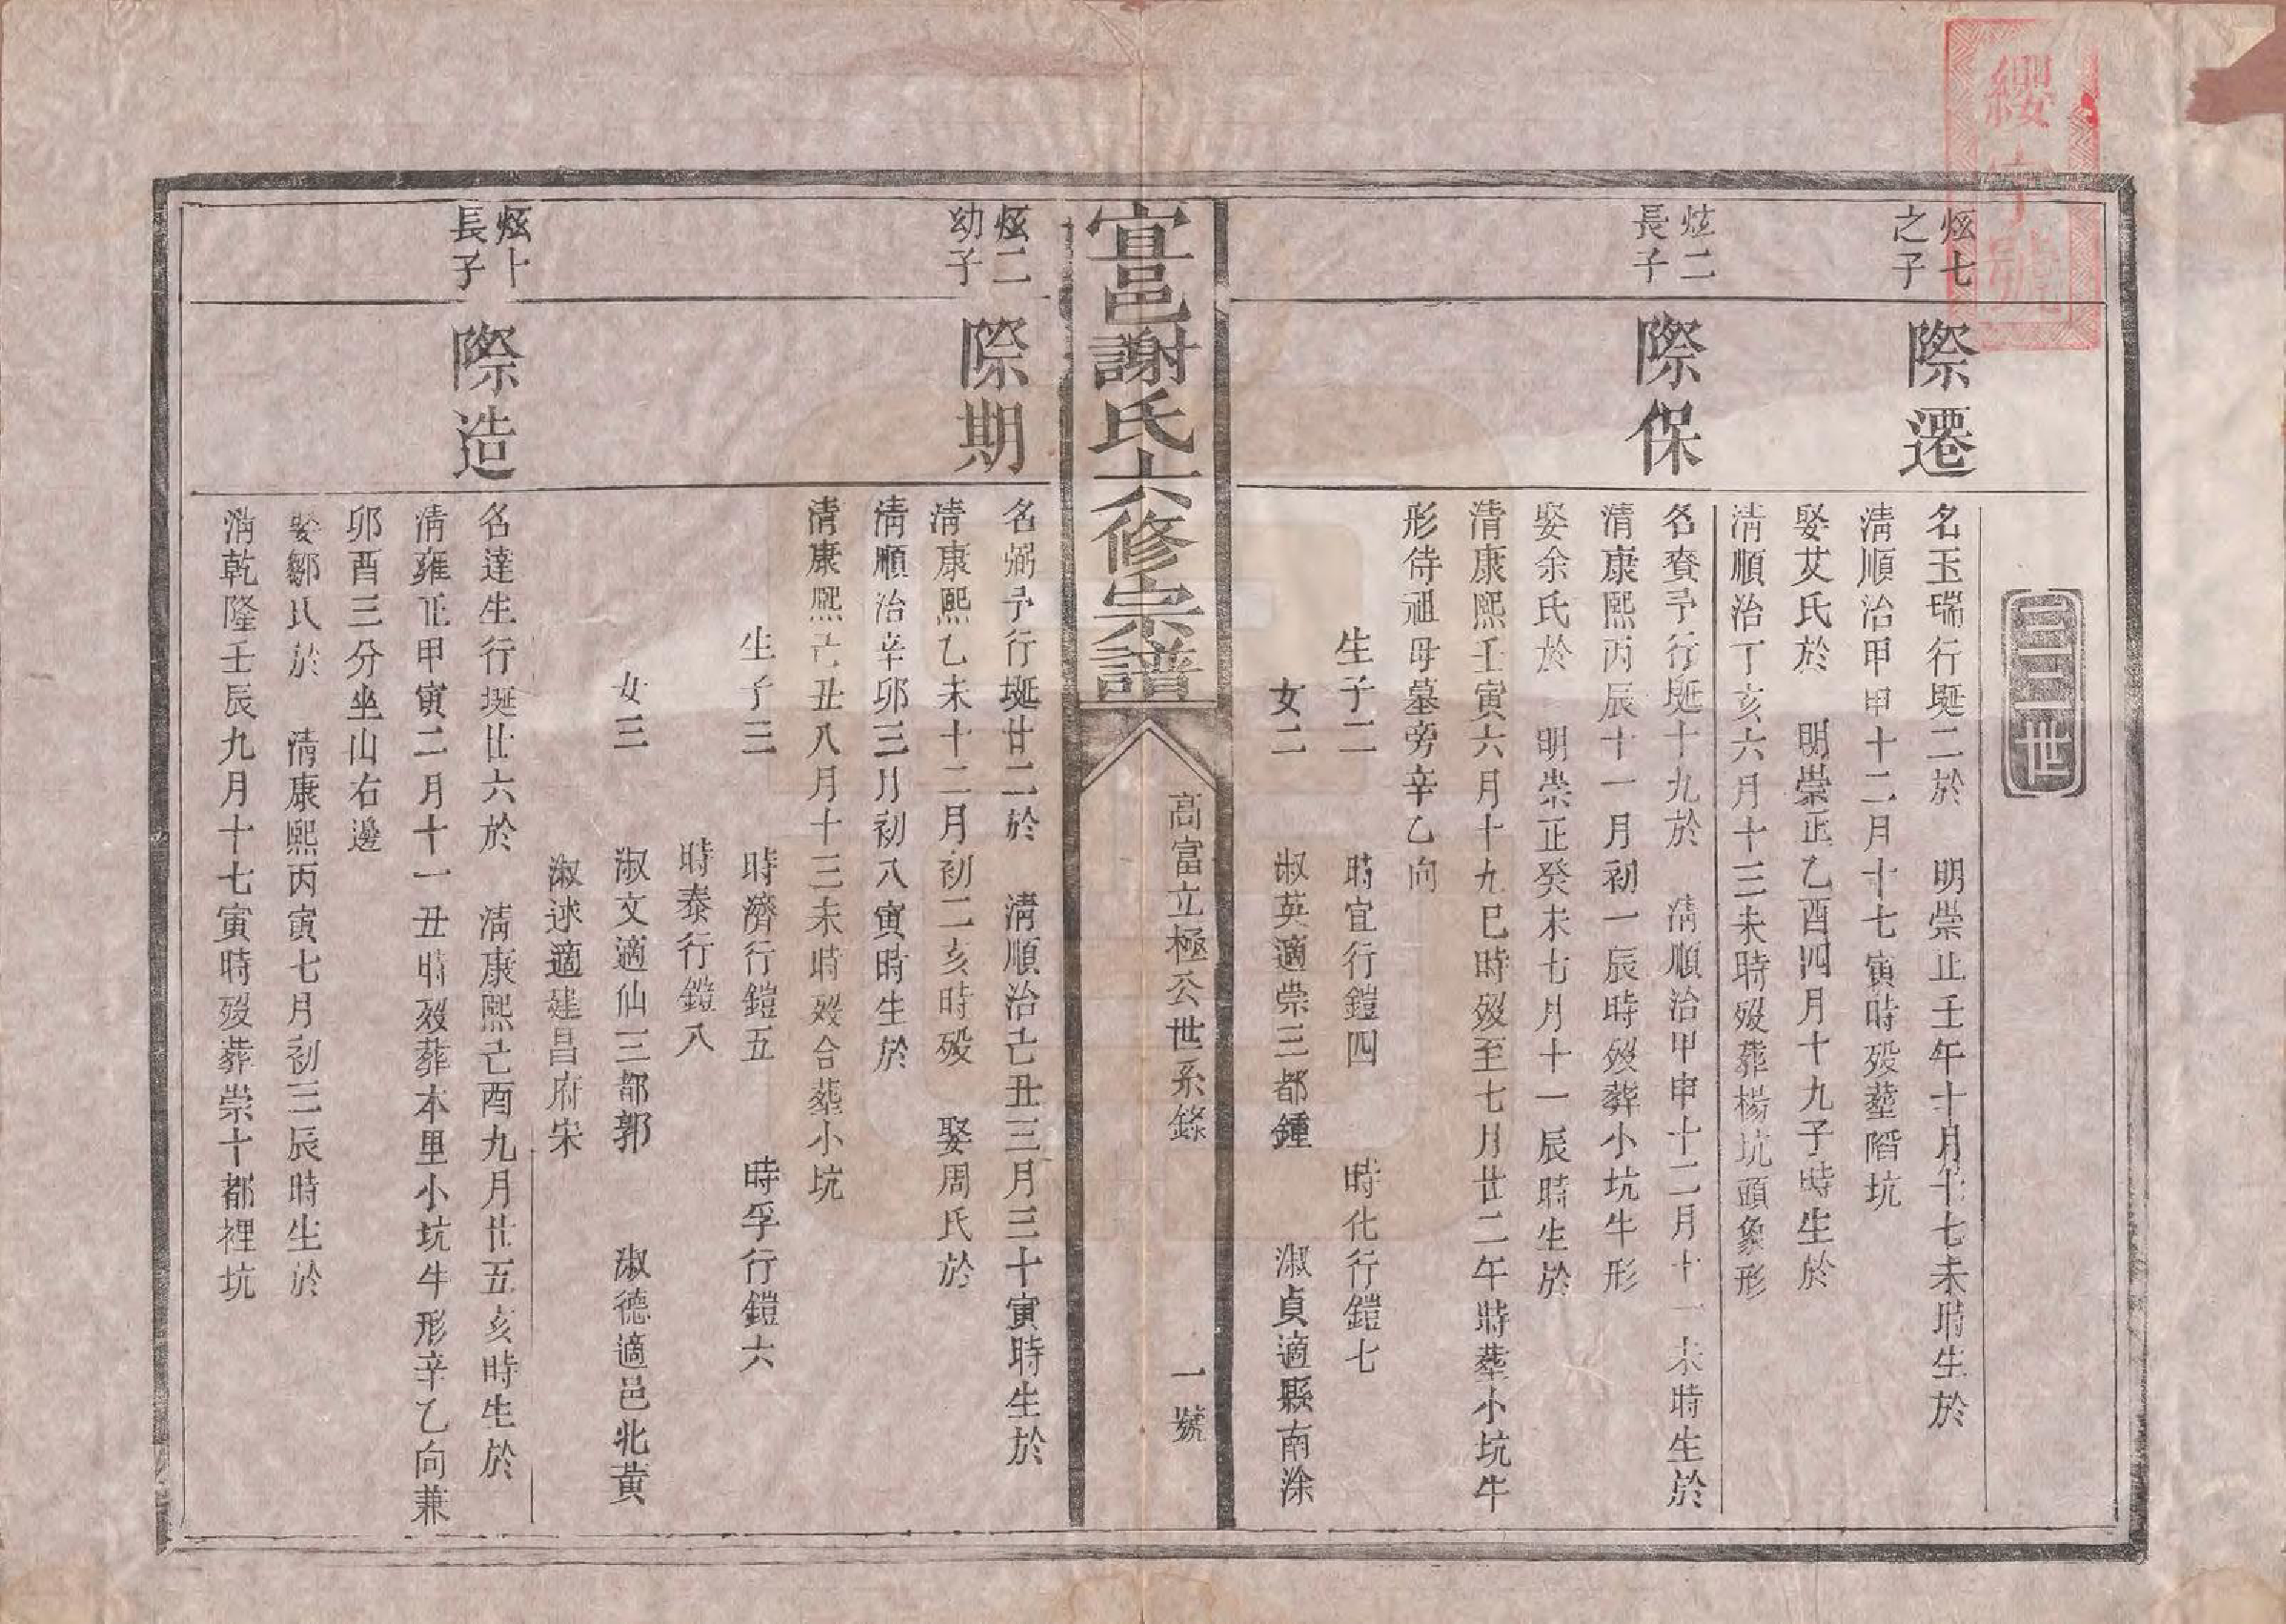 纓字號
三十二世
炫七
之子
際遷
名玉瑞行埏二於　明崇正壬午十月十七未時生於
清順治甲申十二月十七寅時殁塟㽏坑
娶艾氏於　明崇正乙酉四月十九子時生於
清順治丁亥六月十三未時殁葬楊坑頭象形
炫二
長子
際保
名賚予行埏十九於　清順治甲申十二月十一未時生於
清康熙丙辰十一月初一辰時殁葬小坑牛形
娶余氏於　明崇正癸未七月十一辰時生於
清康熙壬寅六月十九巳時殁至七月廿二午時塟小坑牛
形待祖母墓旁辛乙向
生子二　時宜行鎧四　時化行鎧七
女二　淑英適崇三都鍾　淑貞適縣南涂
宜邑謝氏六修宗譜
高富立極公世系錄
一號
炫二
幼子
際期
名弼予行埏廿二於　清順治己丑三月三十寅時生於
清康熙乙未十二月初二亥時殁　娶周氏於
清順治辛卯三月初八寅時生於
清康熙己丑八月十三未時殁合塟小坑
生子三　時濟行鎧五　時孚行鎧六
時泰行鎧八
女三　淑文適仙三都郭　淑德適邑北黃
淑述適建昌府宋
炫十
長子
際造
名達生行埏廿六於　清康熙己酉九月廿五亥時生於
清雍正甲寅二月十一丑時殁葬本里小坑牛形辛乙向兼
卯酉三分坐山右邊
娶鄒氏於　清康熙丙寅七月初三辰時生於
清乾隆壬辰九月十七寅時殁葬崇十都裡坑